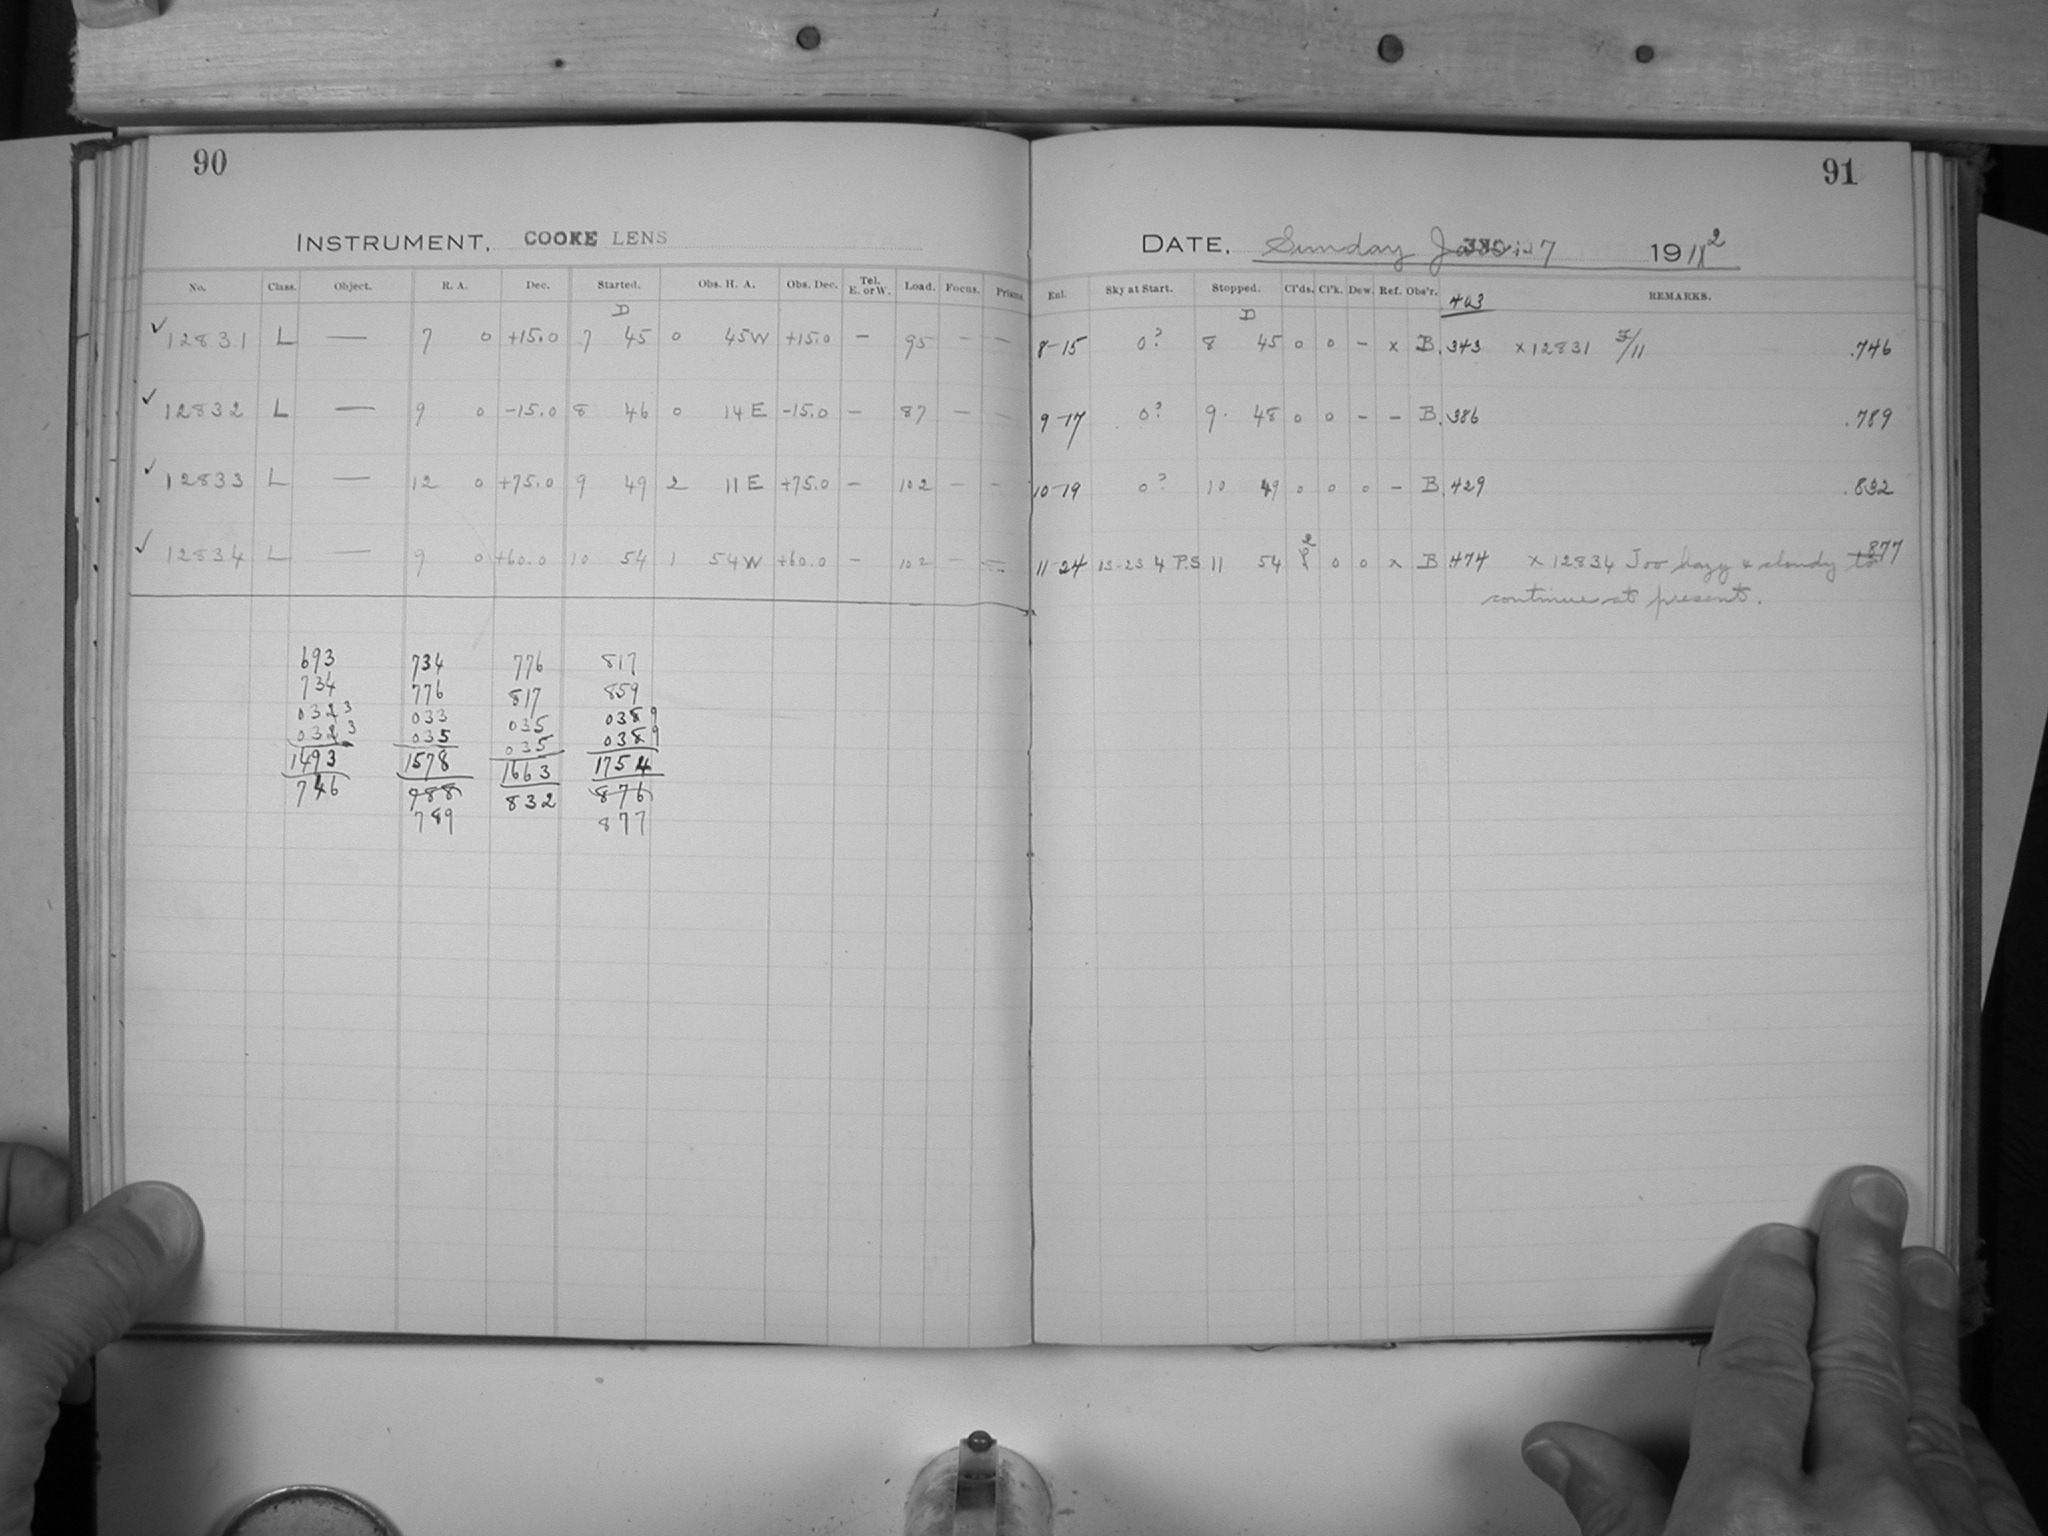 90
INSTRUMENT, COOKE LENS
No. Class. Object. R. A. Dec. Started. Obs. H. A. Obs. Dec. Tel. E. or W. Load. Focus. Prisms.
D
✓ 12831 L — 7 0 +15.0 7 45 0 45 W +15.0 – 95 – –
✓ 12832 L — 9 0 -15.0 8 46 0 14 E -15.0 – 87 – –
✓ 12833 L — 12 0 +75.0 9 49 2 11 E +75.0 – 102 – –
✓ 12834 L — 9 0 +60.0 10 54 1 54 W +60.0 – 102 – –
693 734 776 817
734 776 817 859
0323 033 035 0389
0323 035 035 0389
1493 1578 1663 1754
746 788 832 876
789 877
91
DATE, Sunday 7 1912
Enl. Sky at Start. Stopped. Cl'ds. Cl'k. Dew. Ref. Obs'r. 403 REMARKS.
D
8-15 0? 8 45 0 0 – x B .343 x 12831 F/11 .746
9-17 0? 9 48 0 0 – – B .386 .789
10-19 0? 10 49 0 0 0 – B .429 .832
11-24 13-23 4 P.S 11 54 2 0 0 x B .474 x 12834 Too hazy & cloudy to .877
continue at present.